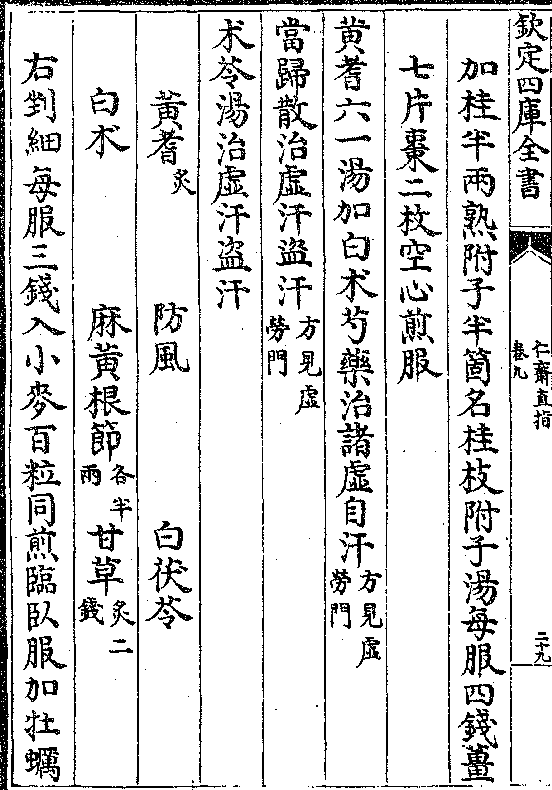 欽定四庫全書
仁齋直指
卷九
二十九
加桂半兩熟附子半箇名桂枝附子湯每服四錢薑
七片棗二枚空心煎服
黄耆六一湯加白朮芍藥治諸虛自汗方見虛勞門
當歸散治虛汗盜汗方見虛勞門
朮苓湯治虛汗盜汗
黄耆炙 防風 白茯苓
白朮 麻黄根節各半兩 甘草炙二錢
右剉細每服三錢入小麥百粒同煎臨臥服加牡蠣